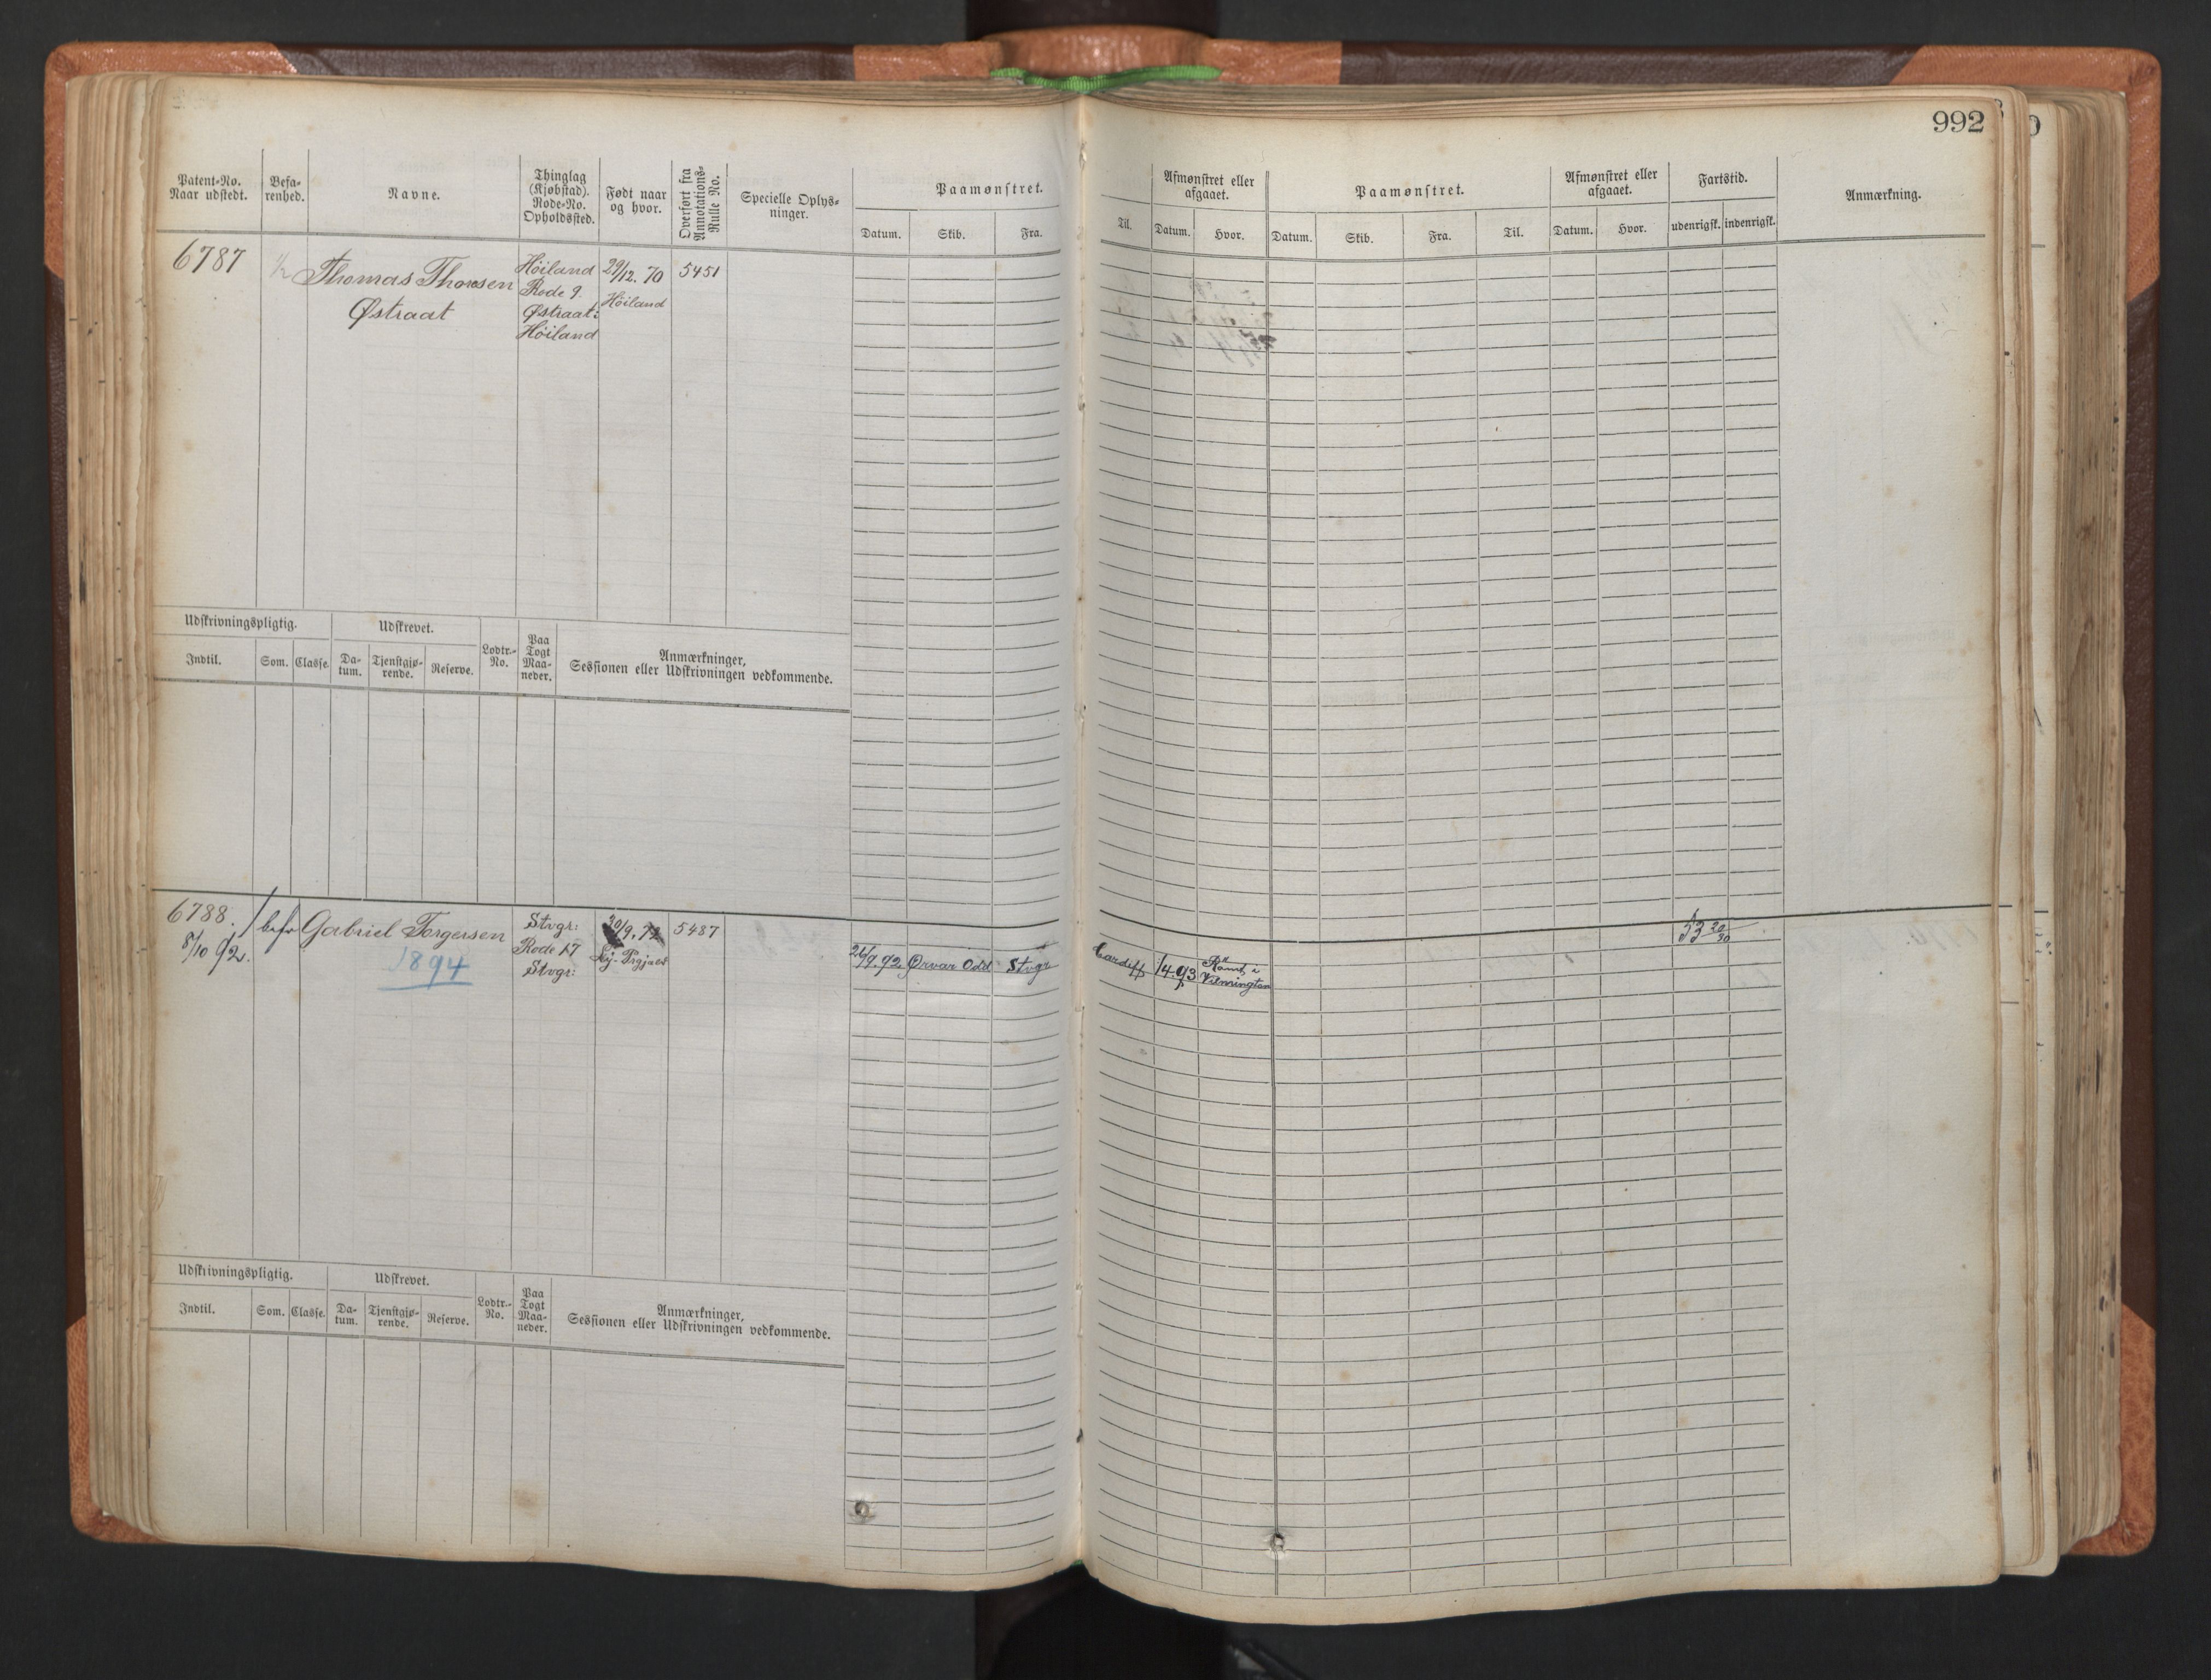 992
Patent-No.
Naar udstedt.
Befa-
renhed.
Navne.
Thinglag
(Kjøbstad).
Rode-No.
Opholdssted.
Født naar
og hvor.
Overført fra
Annotations-
Rulle No.
Specielle Oplys-
ninger.
Paamønstret.
Datum.
Skib.
Fra.
Til.
Afmønstret eller
afgaaet.
Datum.
Hvor.
Paamønstret.
Datum.
Skib.
Fra.
Til.
Afmønstret eller
afgaaet.
Datum.
Hvor.
Fartstid.
udenrigsk.
indenrigsk.
Anmærkning.
6787
1/2
Thomas Thorsen
Østraat
Höiland
Rode 9.
Østraat:
Höiland
29/12. 70
Höiland
5451
Udskrivningspligtig.
Udskrevet.
Indtil.
Som.
Classe.
Da-
tum.
Tjenstgjø-
rende.
Reserve.
Lodtr.-
No.
Paa
Togt
Maa-
neder.
Anmærkninger,
Sessionen eller Udskrivningen vedkommende.
6788.
8/10 92.
befr
Gabriel Torgersen
1894
Stvgr:
Rode 17
Stvgr:
30/9. 72
5487
26/9.92
Ørvar Odd
Stvgr
Cardiff
14.93
Römt i
Vilmington
53 20/30
Udskrivningspligtig.
Udskrevet.
Indtil.
Som.
Classe.
Da-
tum.
Tjenstgjø-
rende.
Reserve.
Lodtr.-
No.
Paa
Togt
Maa-
neder.
Anmærkninger,
Sessionen eller Udskrivningen vedkommende.